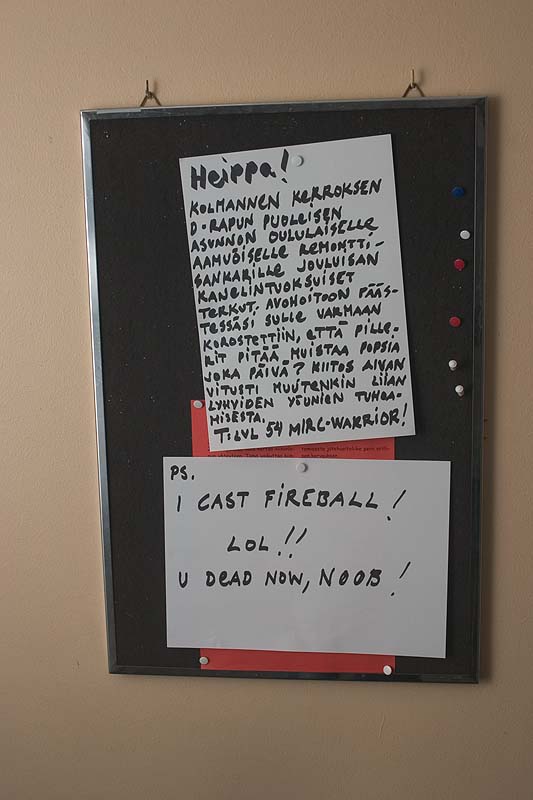 Heippa!
KOLMANNEN KERROKSEN
D-RAPUN PUOLEISEN
ASUNNON OULULAISELLE
AAMUÖISELLE REMONTTI-
SANKARILLE JOULUISAN
KANELINTUOKSUISET
TERKUT. AVOHOITOON PÄÄS-
TESSÄSI SULLE VARMAAN
KOROSTETTIIN, ETTÄ PILLE-
RIT PITÄÄ MUISTAA POPSIA
JOKA PÄIVÄ? KIITOS AIVAN
VITUSTI MUUTENKIN LIIAN
LYHYIDEN YÖUNIEN TUHOA-
MISESTA.
T: LVL 54 MIRC-WARRIOR!
PS.
I CAST FIREBALL!
LOL!!
U DEAD NOW, NOOB!